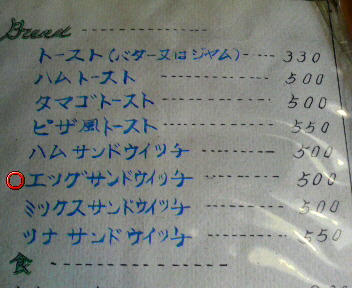 Bread
トースト(バター又はジャム) 330
ハムトースト 500
タマゴトースト 500
ピザ風トースト 550
ハムサンドウィッチ 500
エッグサンドウィッチ 500
ミックスサンドウィッチ 500
ツナサンドウィッチ 550
食